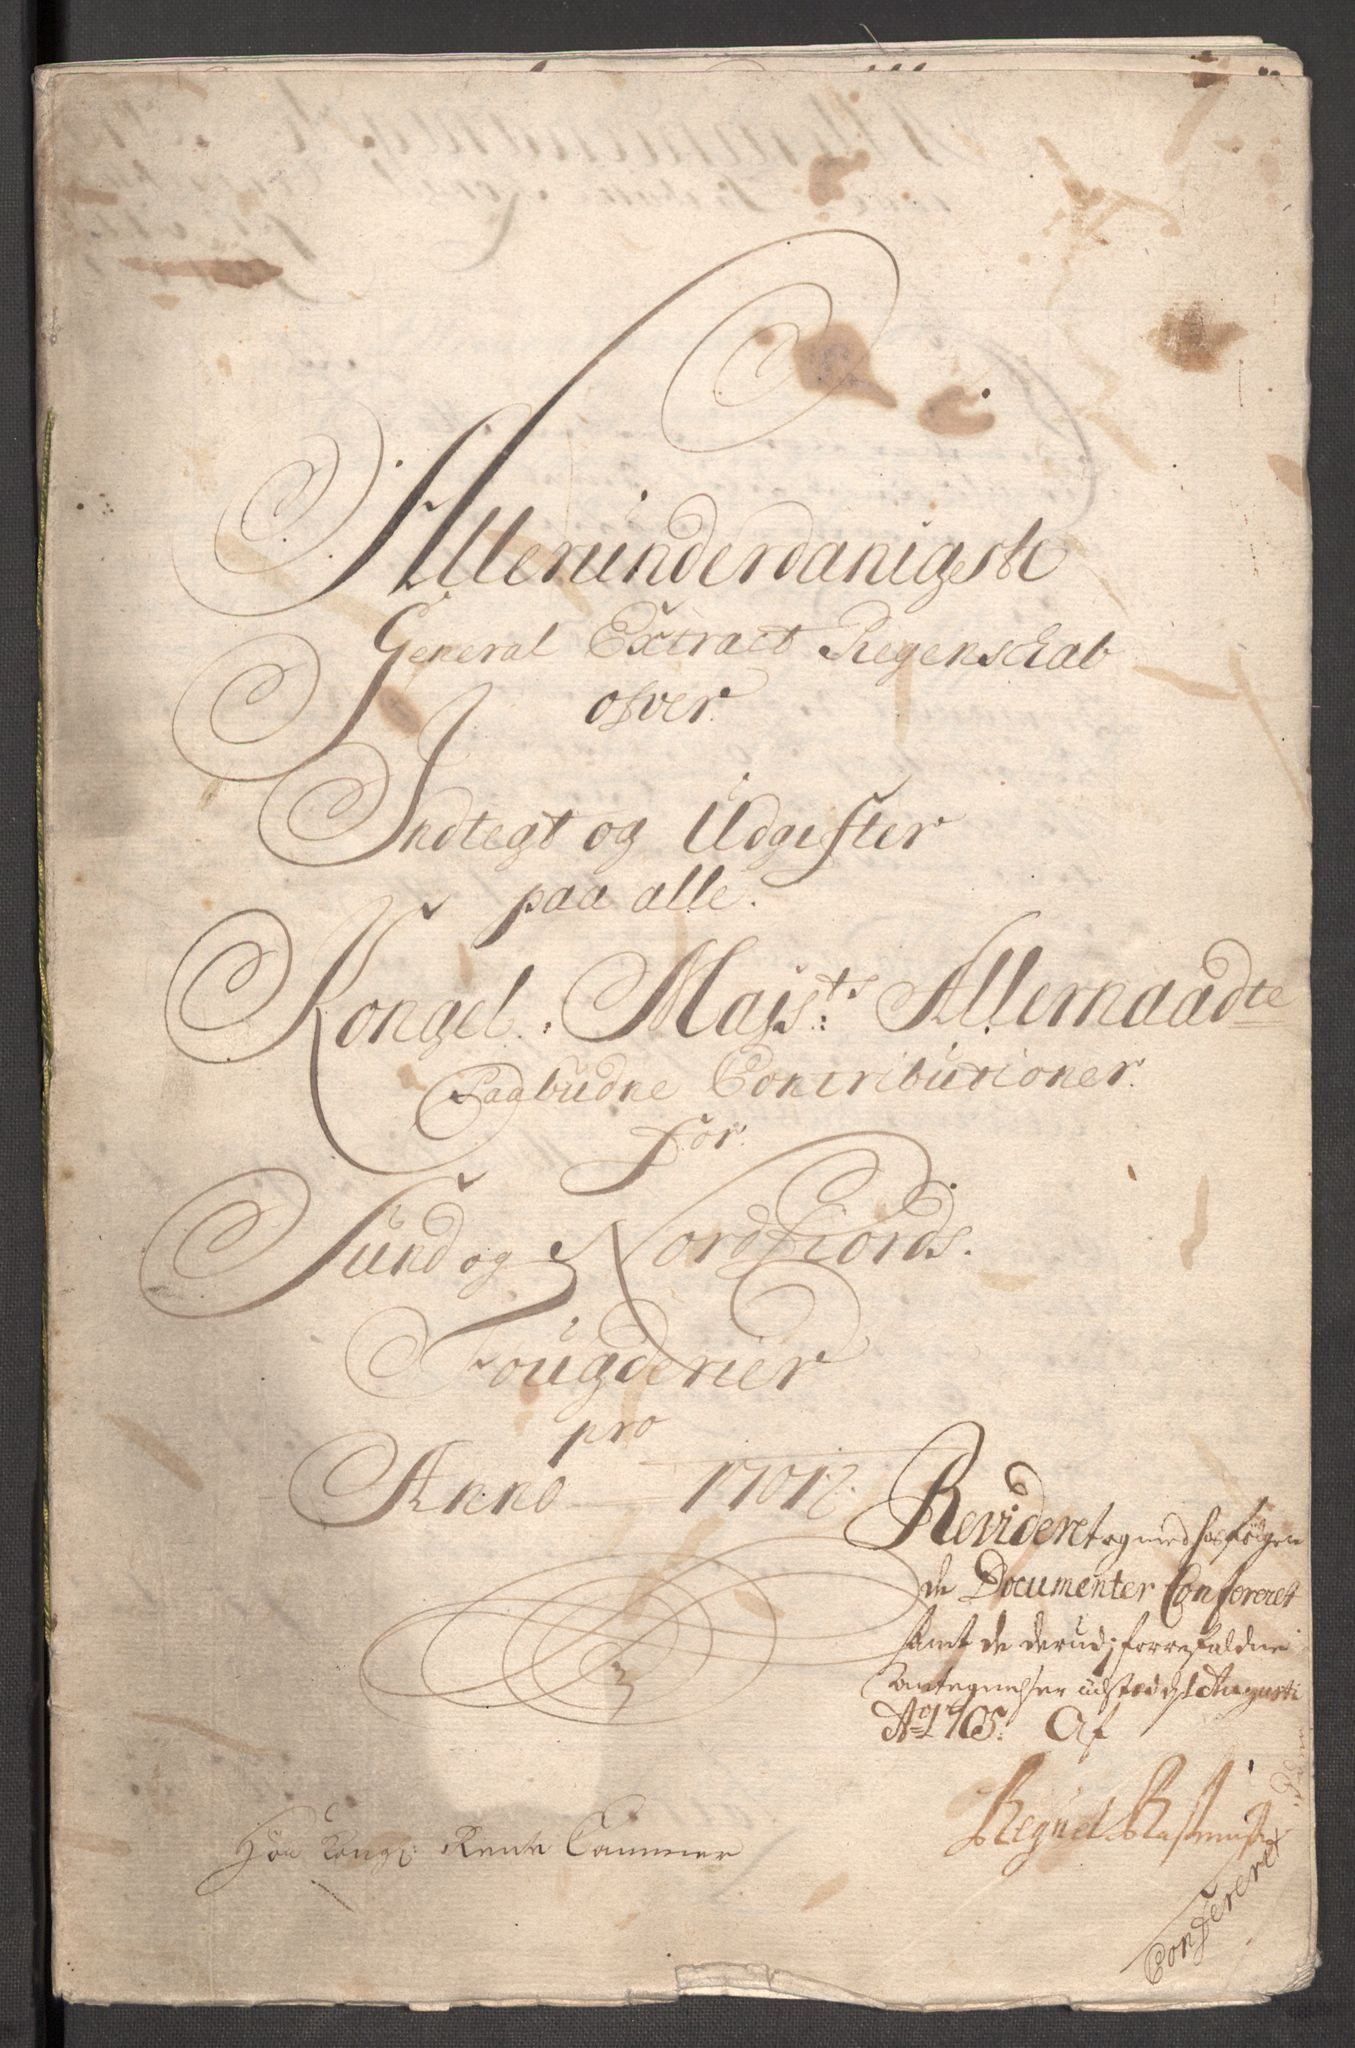 Allerunderdanigste
General Extract Regenschab
ofver
Indtegt og Udgifter
paa alle
Kongel. Majsts: Allernaadte
Paabudne Contributioner
for
Sund og Nordfiords
Fougderier
pro
Anno 1701
Revideret og med hosfølgen
de Documenter Confereret
samt de derudj forrefaldne
antegnelser udsted d 1 Augusti
Ao 1705. Af
Regnel
Confereret
Høy Kongl: Rente Cammer